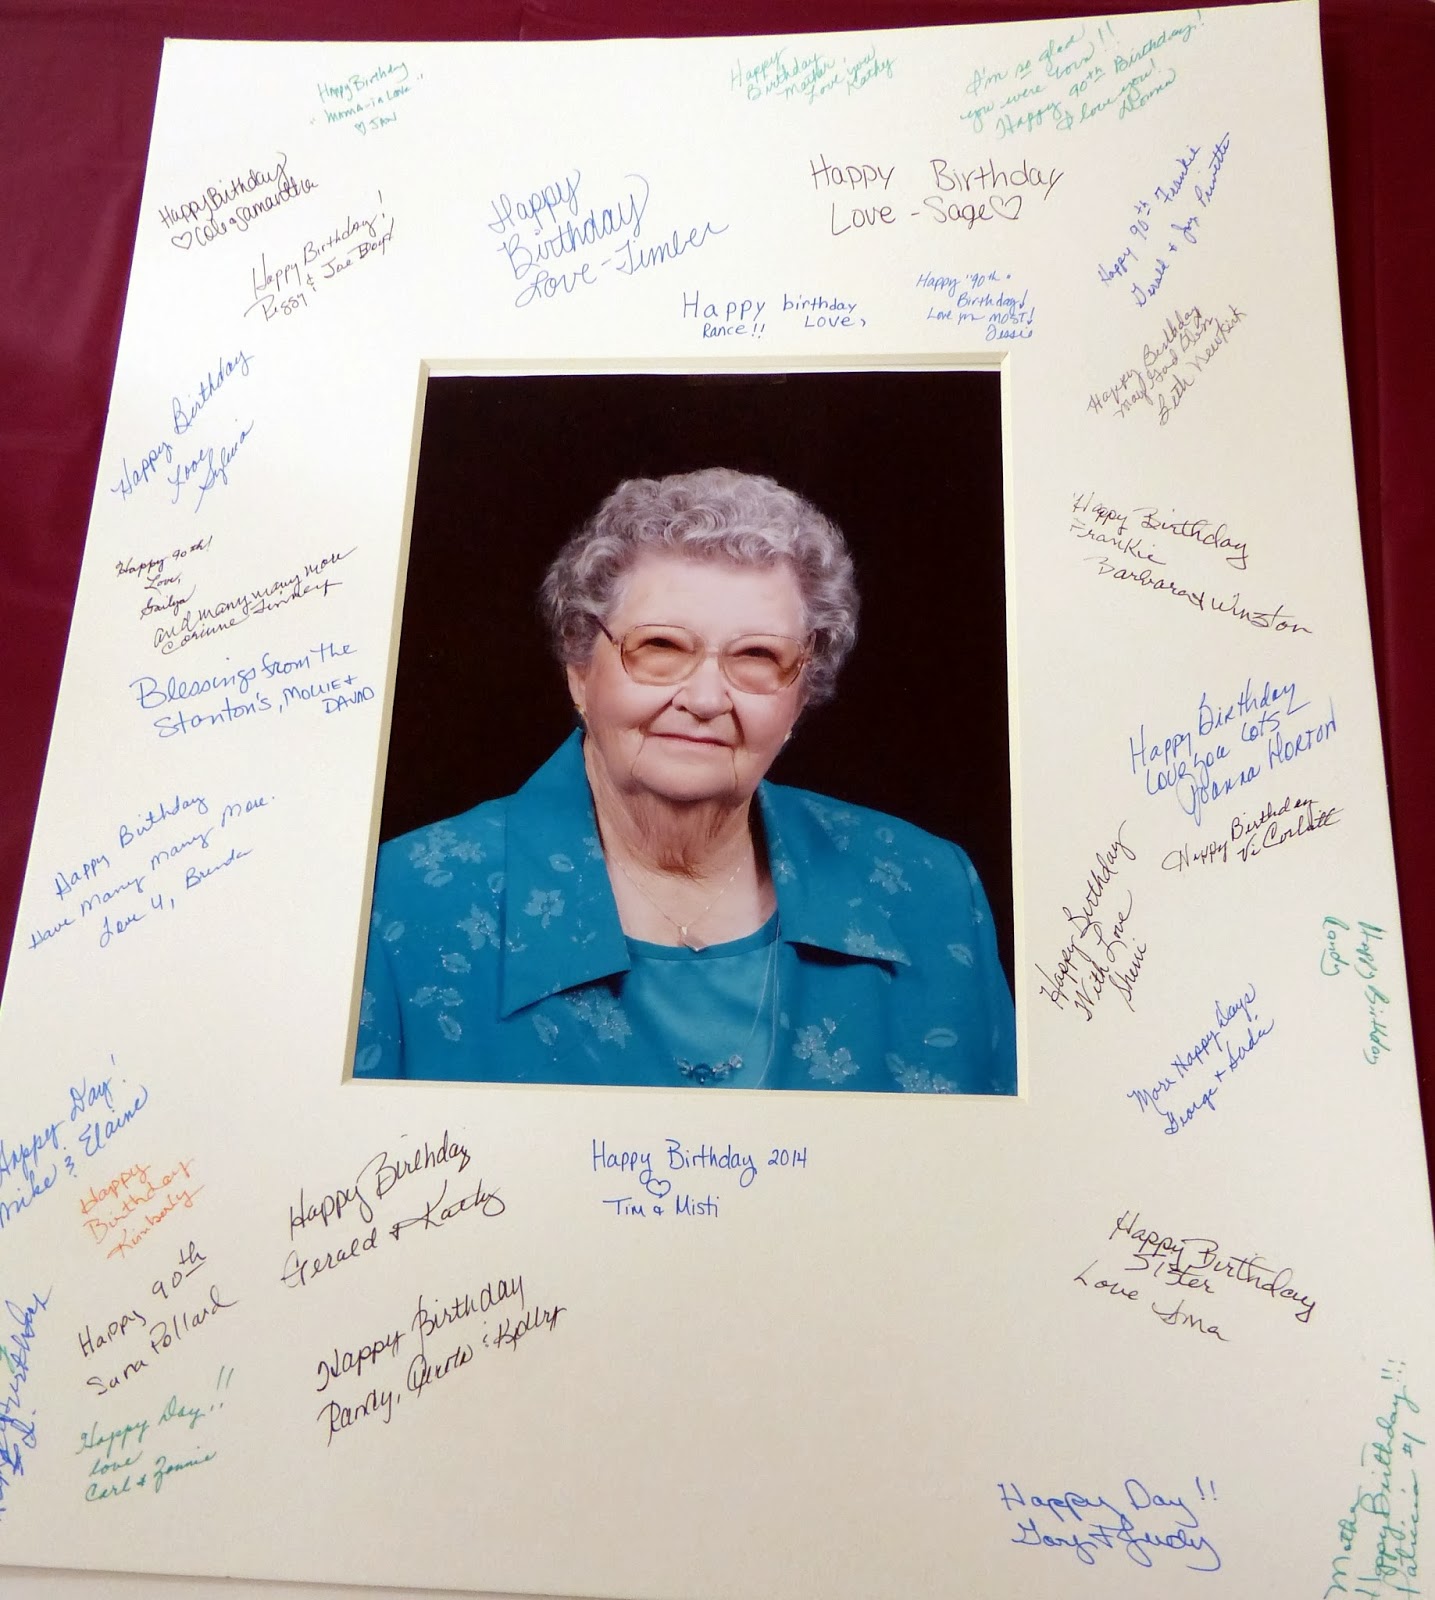 Happy Birthday
mama-in Love
♡ JAN
Happy
Birthday
Mother,
Love you
Kathy
I'm so glad
you were born!!
Happy 90th Birthday!
I love you!
Donna
Happy Birthday
♡ Cole & Samantha
Happy Birthday!
Peggy & Joe
Happy
Birthday
Love - Timber
Happy Birthday
Love - Sage ♡
Happy birthday
Rance!! Love,
Happy "90th"
Birthday!
Love you MOST!
Jessie
Happy 90th Frankie
Gerald & Joy Privette
Happy Birthday
May God Bless
Beth Newkirk
Happy Birthday
Love
Sylvia
Happy Birthday
Frankie
Barbara & Winston
Happy 90th!
Love,
and many many more
Corinne
Blessings from the
Stanton's, Mollie &
David
Happy Birthday
Love you Lots
Joanna Horton
Happy Birthday
Vi Corbett
Happy Birthday
Have Many Many More.
Love Y, Brenda
Happy Birthday
With Love
Sherri
Happy Birthday
More Happy Days
George &
Happy Day!
Mike & Elaine
Happy
Birthday
Kimberly
Happy Birthday
Gerald & Kathy
Happy Birthday 2014
♡
Tim & Misti
Happy Birthday
Sister
Love
Happy 90th
Sara Pollard
Happy Birthday
Randy,
Happy Day!!
love
Carl &
Birthday
Happy Day!!
Gary & Judy
Mother
Happy Birthday!!!
Patricia #1